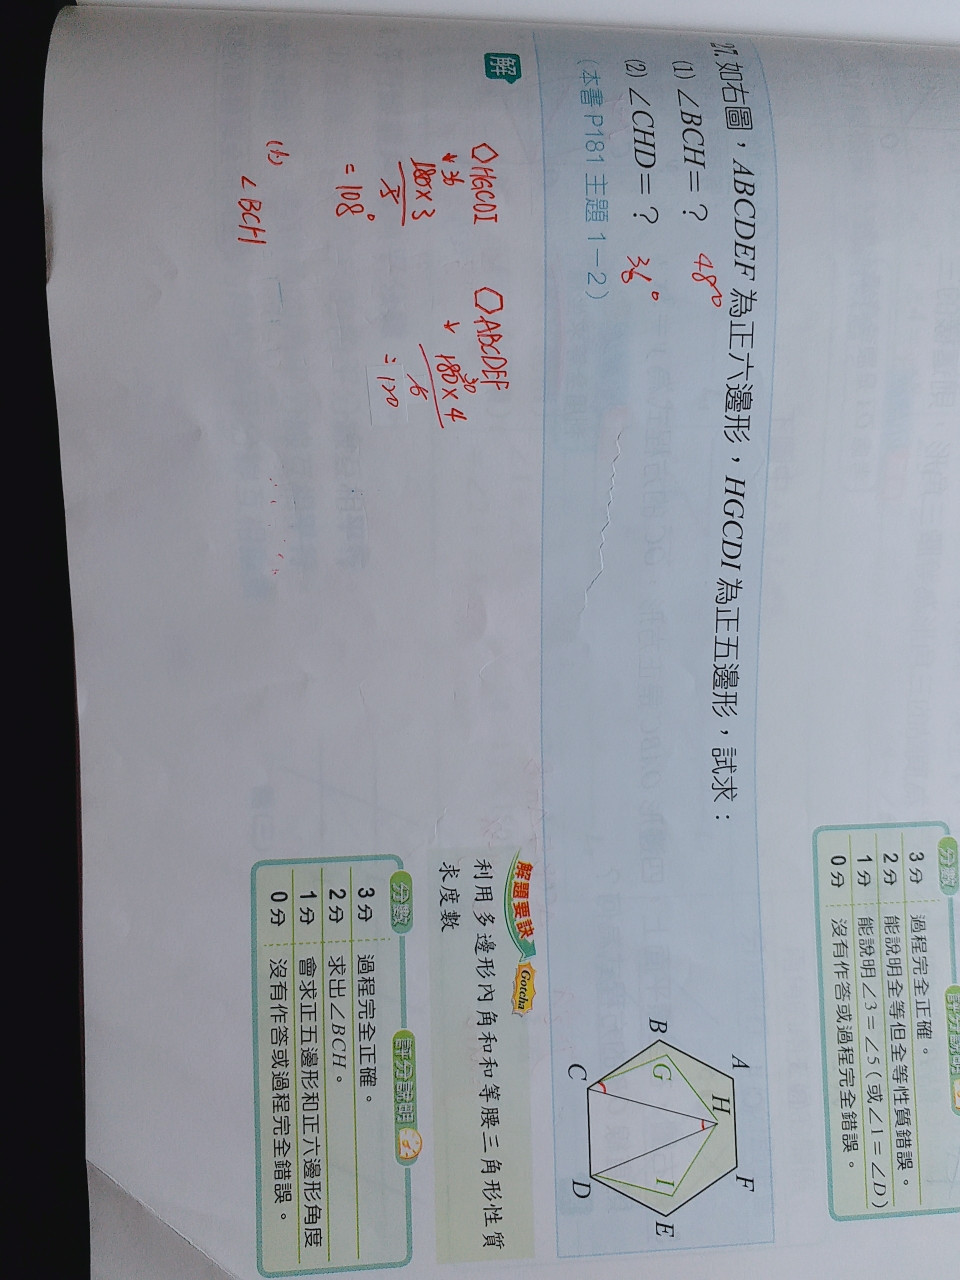 3分 過程完全正確。
2分 能說明全等但全等性質錯誤。
1分 能說明∠3=∠5(或∠1=∠D)
0分 沒有作答或過程完全錯誤。
如右圖,ABCDEF 為正六邊形,HGCDI 為正五邊形,試求:
(1) ∠BCH=? 48°
(2) ∠CHD=? 36°
(本書 P181 主題 1-2)
A
F
H
B
G
I
E
C
D
解
HGCDI
36
180×3
5
=108°
ABCDEF
30
180×4
6
=120
(1)
∠BCH
解題要訣 Gotcha
利用多邊形內角和和等腰三角形性質
求度數
分數 評分說明
3分 過程完全正確。
2分 求出∠BCH。
1分 會求正五邊形和正六邊形角度
0分 沒有作答或過程完全錯誤。